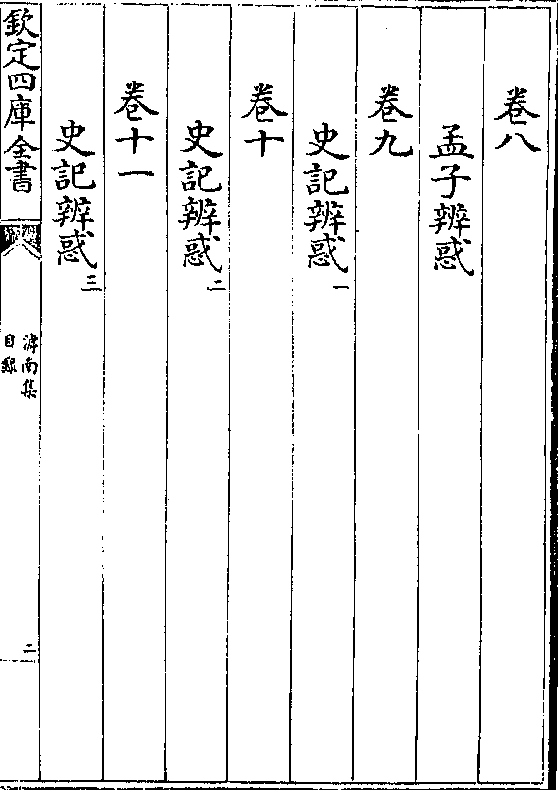 卷八
孟子辨惑
卷九
史記辨惑一
卷十
史記辨惑二
卷十一
史記辨惑三
欽定四庫全書
滹南集
目錄
二